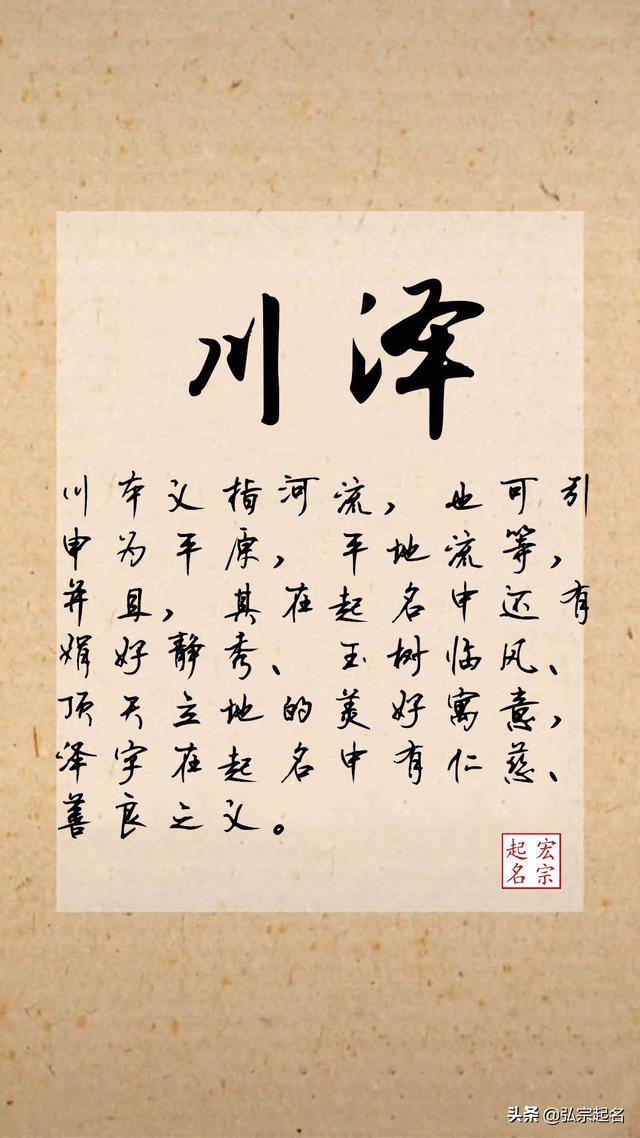 川泽
川本义指河流，也可引
申为平原，平地流等，
并且，其在起名中还有
娟好静秀、玉树临风、
顶天立地的美好寓意，
泽字在起名中有仁慈、
善良之义。
宏宗
起名
头条 @弘宗起名